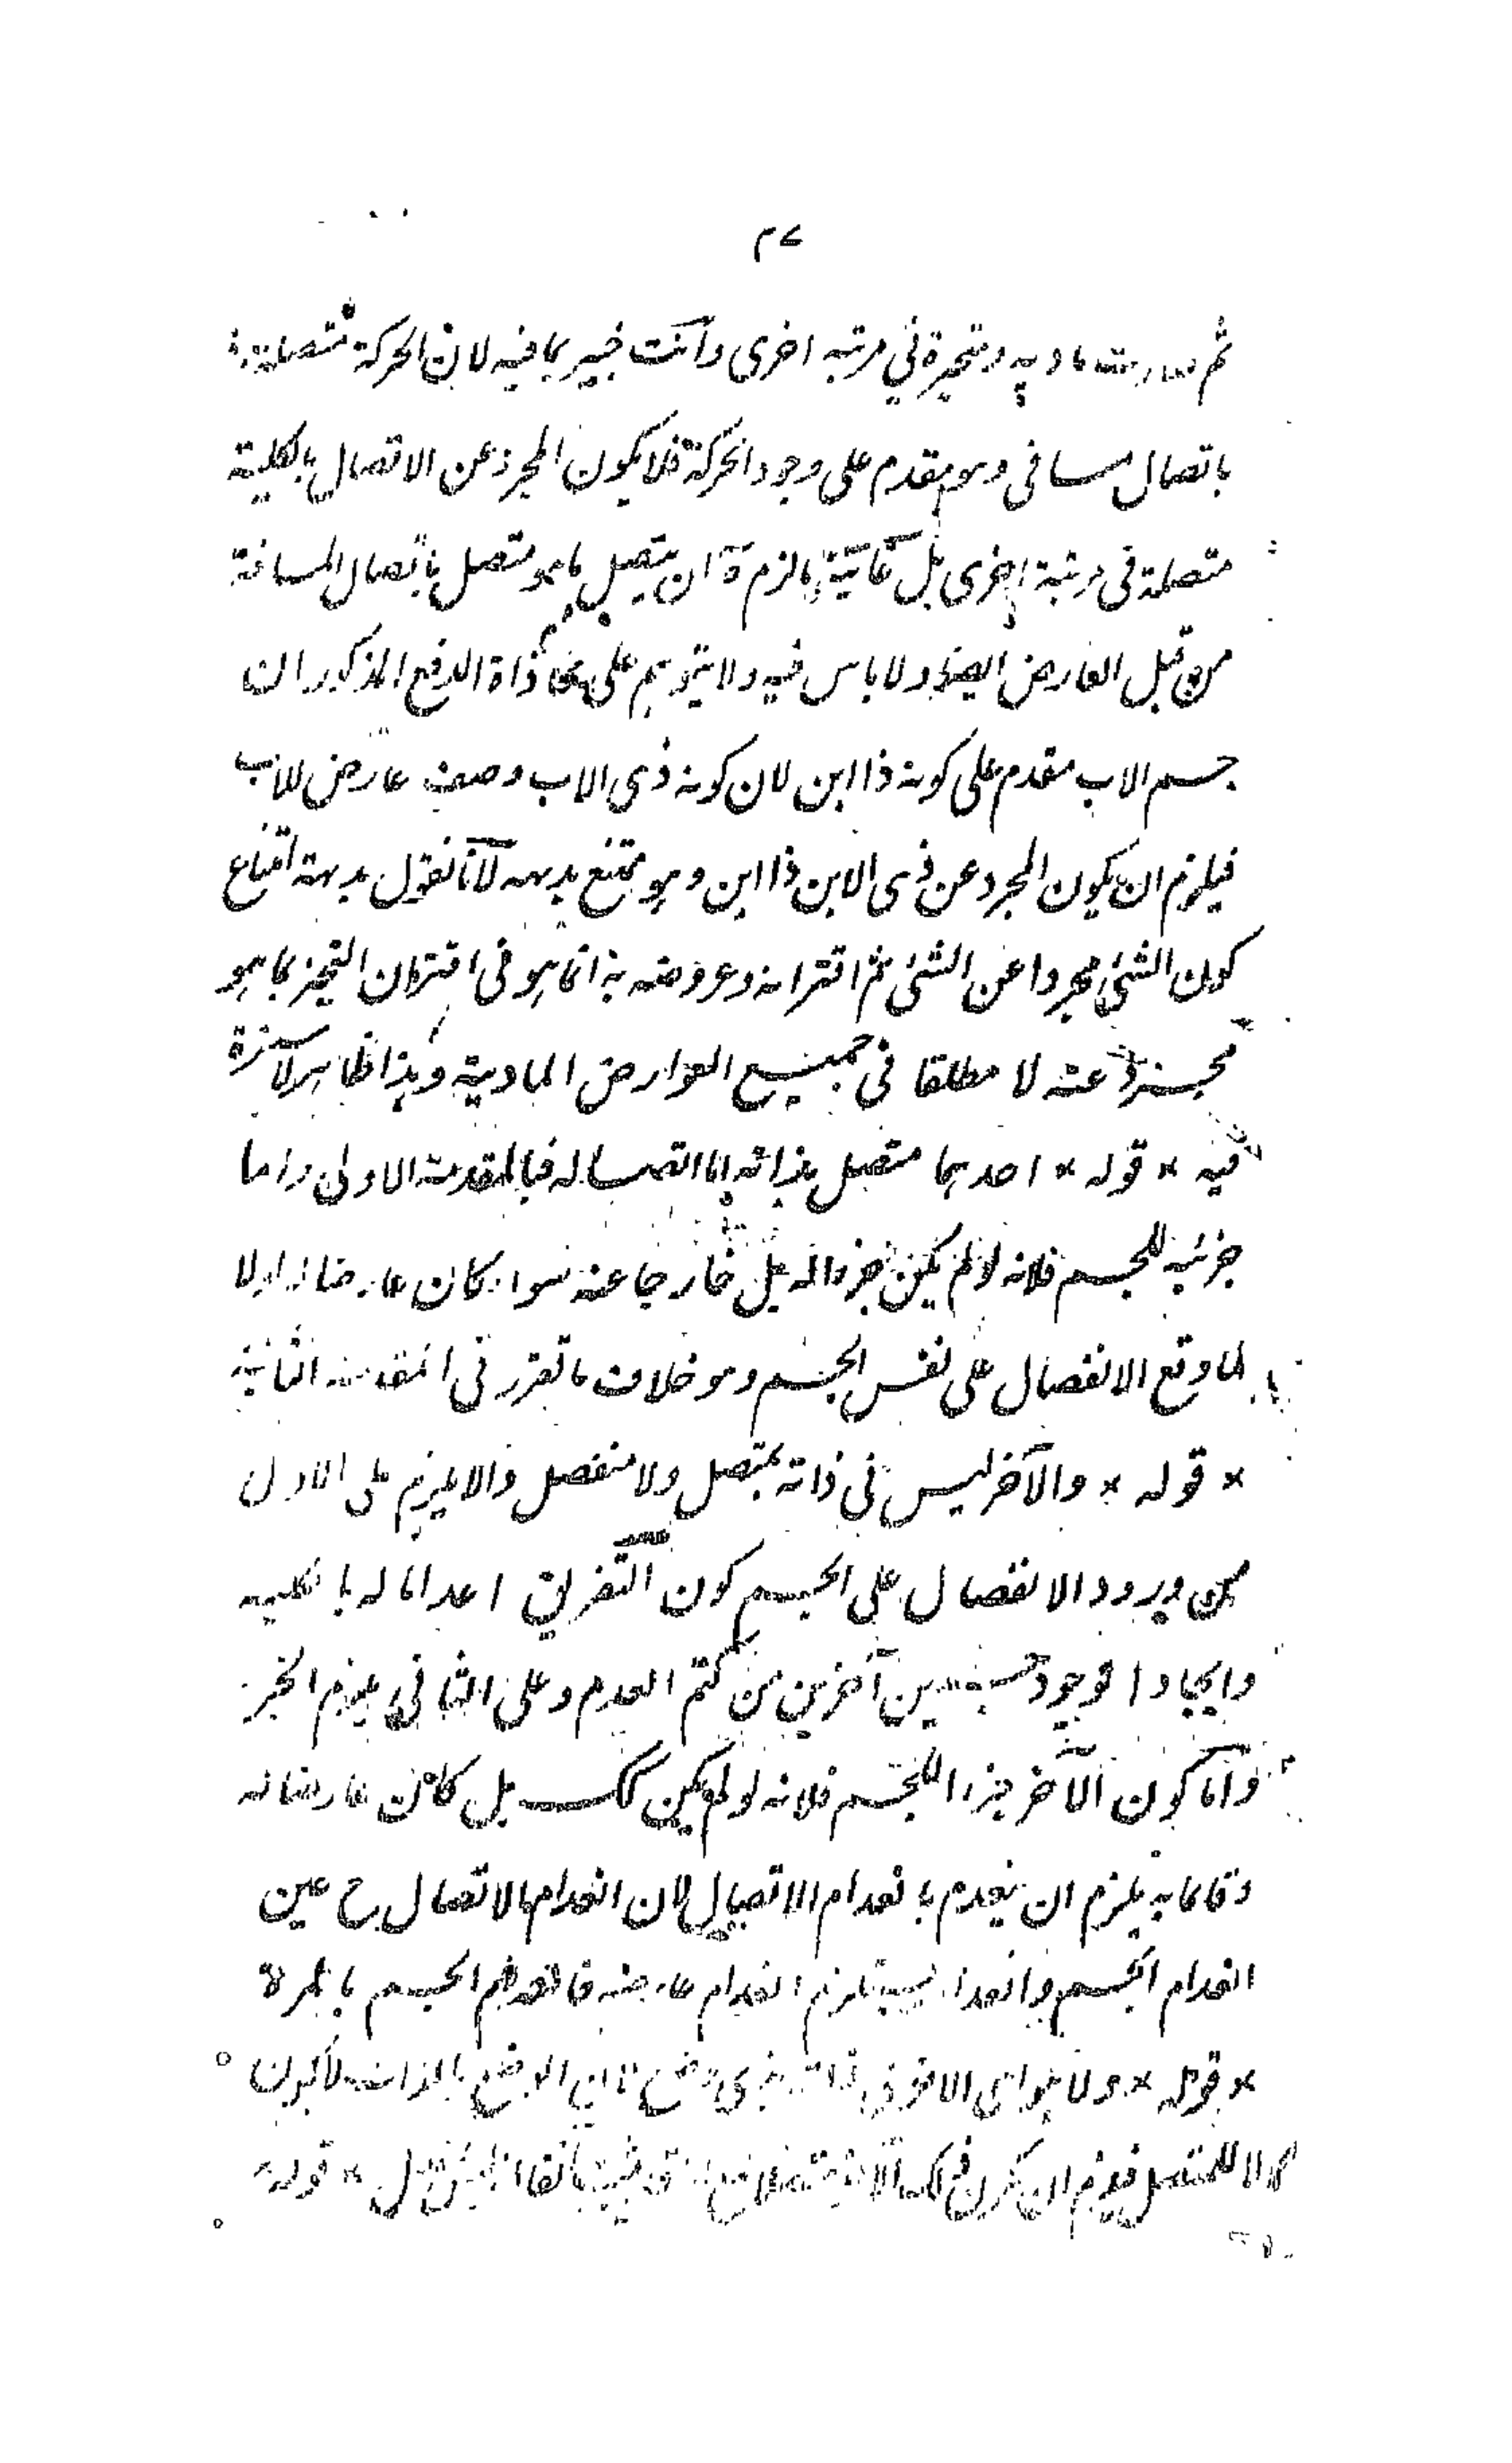 ٢٧
ثم صارت مادية ومتحيزة في مرتبه اخرى وانت خبير بما فيه لان الحركة متصلة
باتصال مسافى وهو مقدم على وجود الحركة فلا يكون المجرد عن الاتصال بالكلية
متصلة فى مرتبة اخرى بل غايته مالزم ان يتصل ما هو متصل باتصال المسافة
من قبل العارض ايضا ولا باس فيه ولا يتوهم على محاذاة الدفع المذكور ان
جسم الاب مقدم على كونه ذا ابن لان كونه ذى الاب وصف عارض للاب
فيلزم ان يكون المجرد عن ذى الابن ذا ابن وهو ممتنع بديهه لانا نقول بديهة امتناع
كون الشئ مجردا عن الشئ ثم اقترانه وعروضه به انما هو فى اقتران التحيز بما هو
متحيز عنه لا مطلقا فى جميع العوارض المادية وهذا ظاهر لا سترة
فيه * قوله * احدهما متصل بذاته اما اتصاله فبالمقدمة الاولى واما
جزئيه للجسم فلانه لو لم يكن جزءا له بل خارجا عنه سواء كان عارضا له او لا
لما وقع الانفصال على نفس الجسم وهو خلاف ما تقرر فى المقدمة الثانية
* قوله * والآخر ليس فى ذاته بمتصل ولا منفصل والا يلزم على الاول
ورود الانفصال على الجسم كون التفريق اعداما له بالكليه
وايجادا لوجود جسمين آخرين من كتم العدم وعلى الثانى يلزم الجزء
واما كون الآخر جزءا للجسم فلانه لو لم يكن كك بل كان عارضا له
وقائما به يلزم ان ينعدم بانعدام الاتصال لان انعدام الاتصال ح عين
انعدام الجسم وانعدامه يستلزم انعدام عارضه فانعدم الجسم بالمرة
* قوله * ولا هو اى الآخر فى ذاته بذى وضع بالذات لا يكون
الا للمتصل فيلزم ان يكون * قوله *